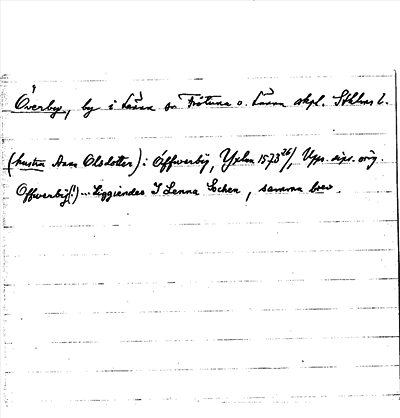 Överby, by i Länna sn Frötuna o. Länna skpl. Sthlms l.
(hustru Anna Olsdotter) i Öffwerby, Yxlan 1573 26/, Upps. dipl. orig.
Offwerby(!) ... Liggiendes I Lenna Sochen, samma brev.